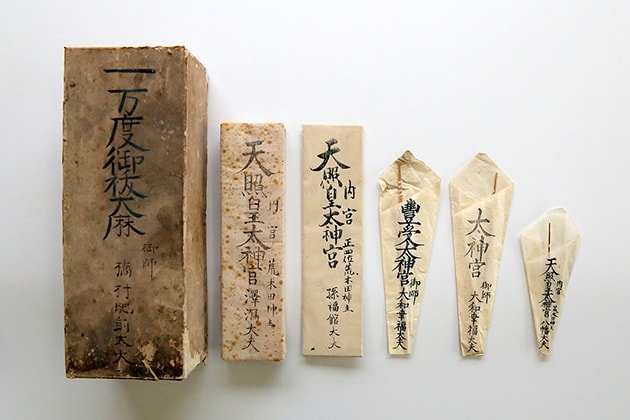 一万度御祓大麻
御師
橋村肥前大夫
天照皇太神宮
内宮
荒木田神主
澤瀉大夫
天照皇太神宮
内宮
正四位荒木田神主
孫福館大夫
豐受太神宮
御師
大和幸福大夫
太神宮
御師
大和幸福大夫
天照皇太神宮
内宮
八幡大夫